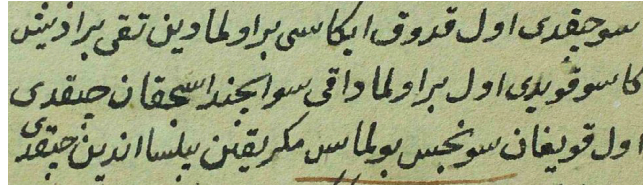 سو حیقدی اول قدوق ایکاسی براولماوین تقی براذیش
کا سو قویدی اول براولماداقی سو ایجنداسحقان حیقدی
اول قویغان سونجس بولماس مکر یقین بیلسا اندین حیقدی